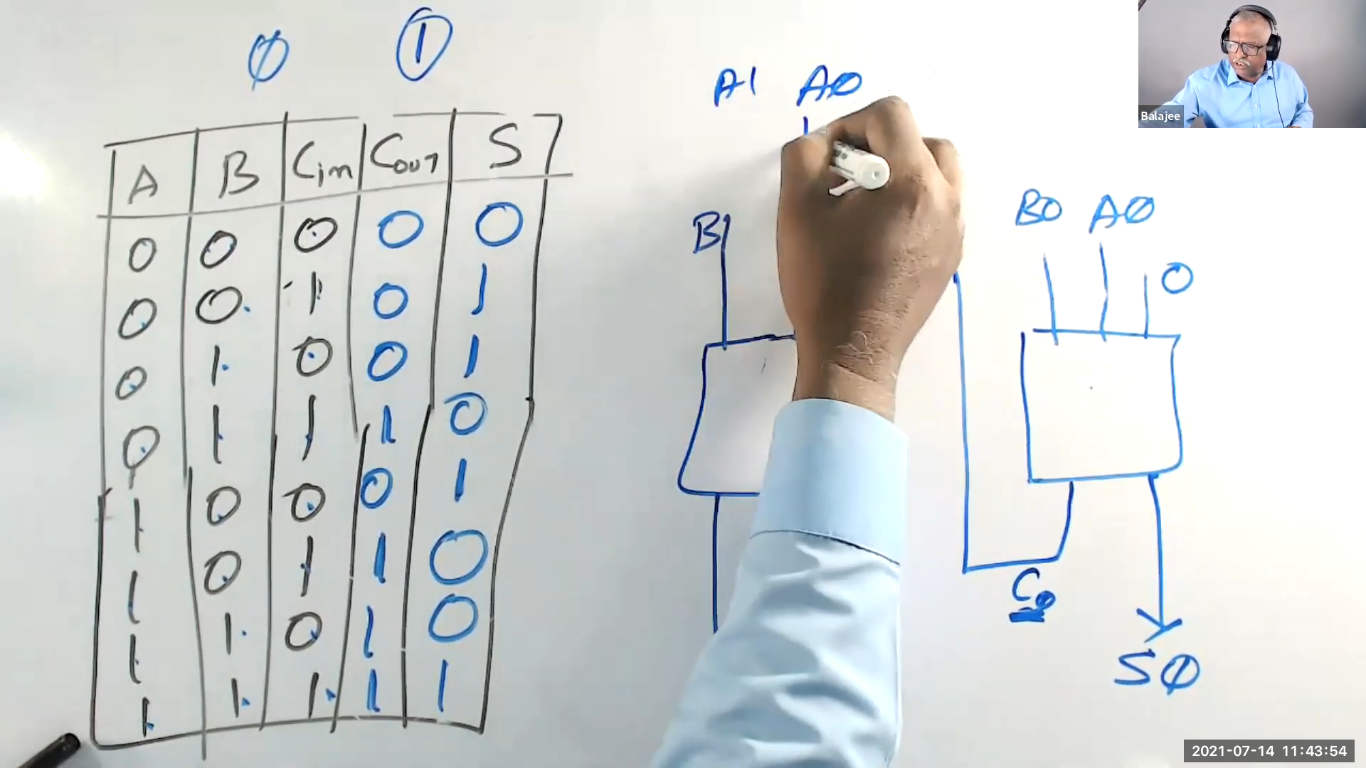 0 1
A B Cin Cout S
0 0 0 0 0
0 0 1 0 1
0 1 0 0 1
0 1 1 1 0
1 0 0 0 1
1 0 1 1 0
1 1 0 1 0
1 1 1 1 1
A1 A0
B1
B0 A0
0
C0
S0
Balajee
2021-07-14 11:43:54